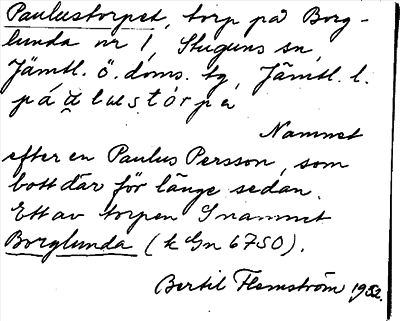 Paulustorpet, torp på Borg-
lunda nr 1, Stuguns sn,
Jämtl. ö. doms. tg, Jämtl. l.
Namnet
efter en Paulus Persson, som
bott där för länge sedan.
Ett av torpen I namnet
Borglunda (k Gn 6750).
Bertil Flemström 1952.